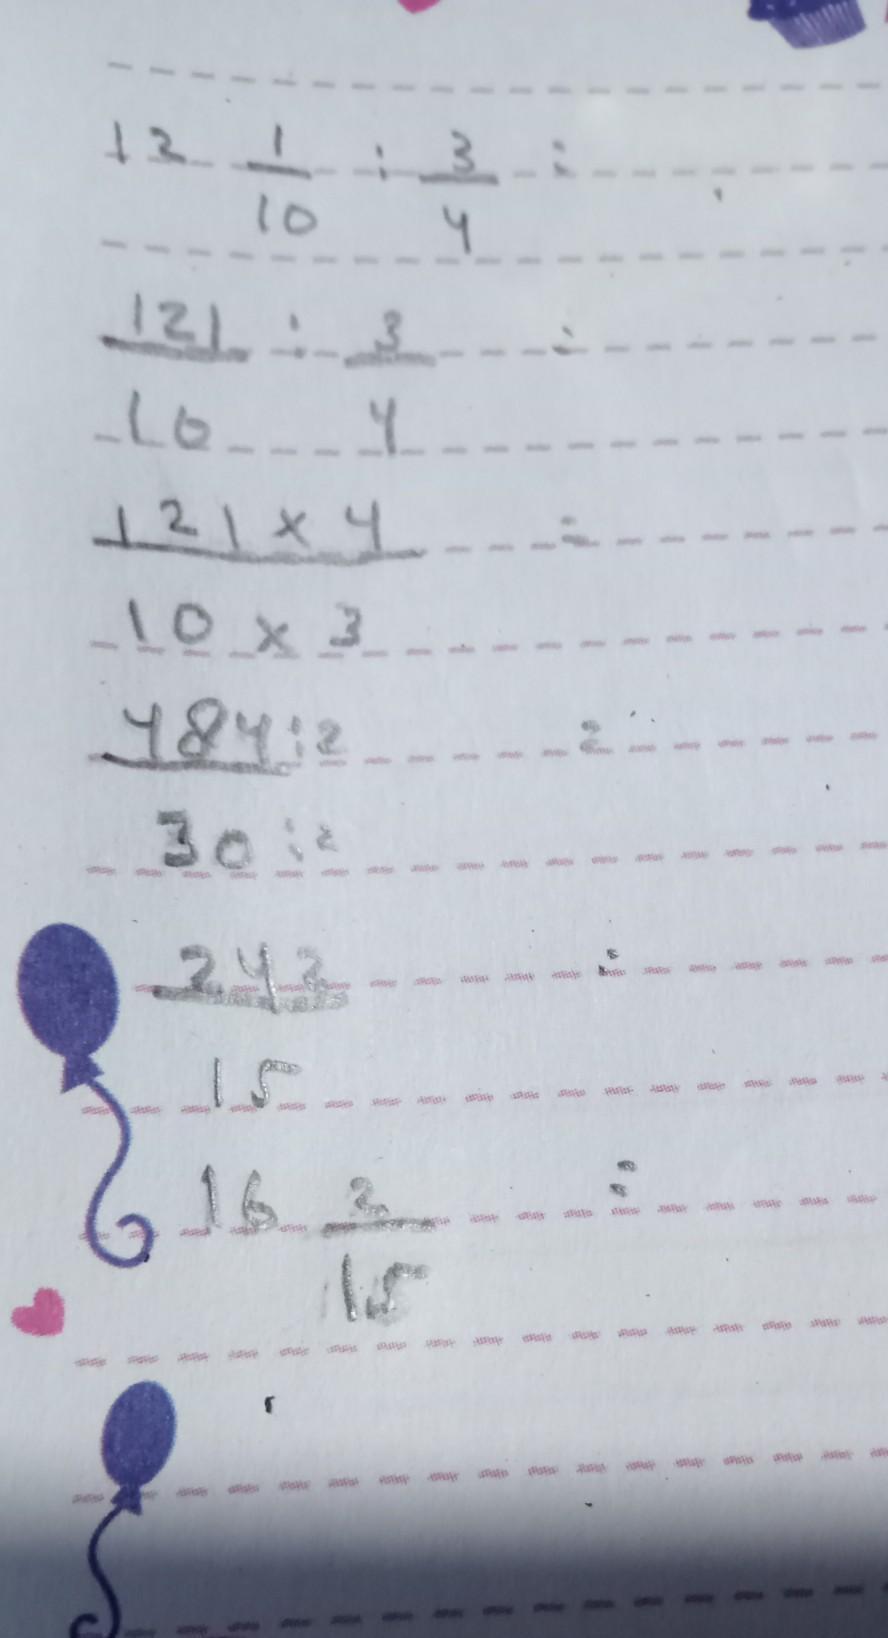 12 1/10 : 3/4 =
121/10 : 3/4 =
121 x 4 =
10 x 3
484:2 =
30:2
242 =
15
16 2/15 =